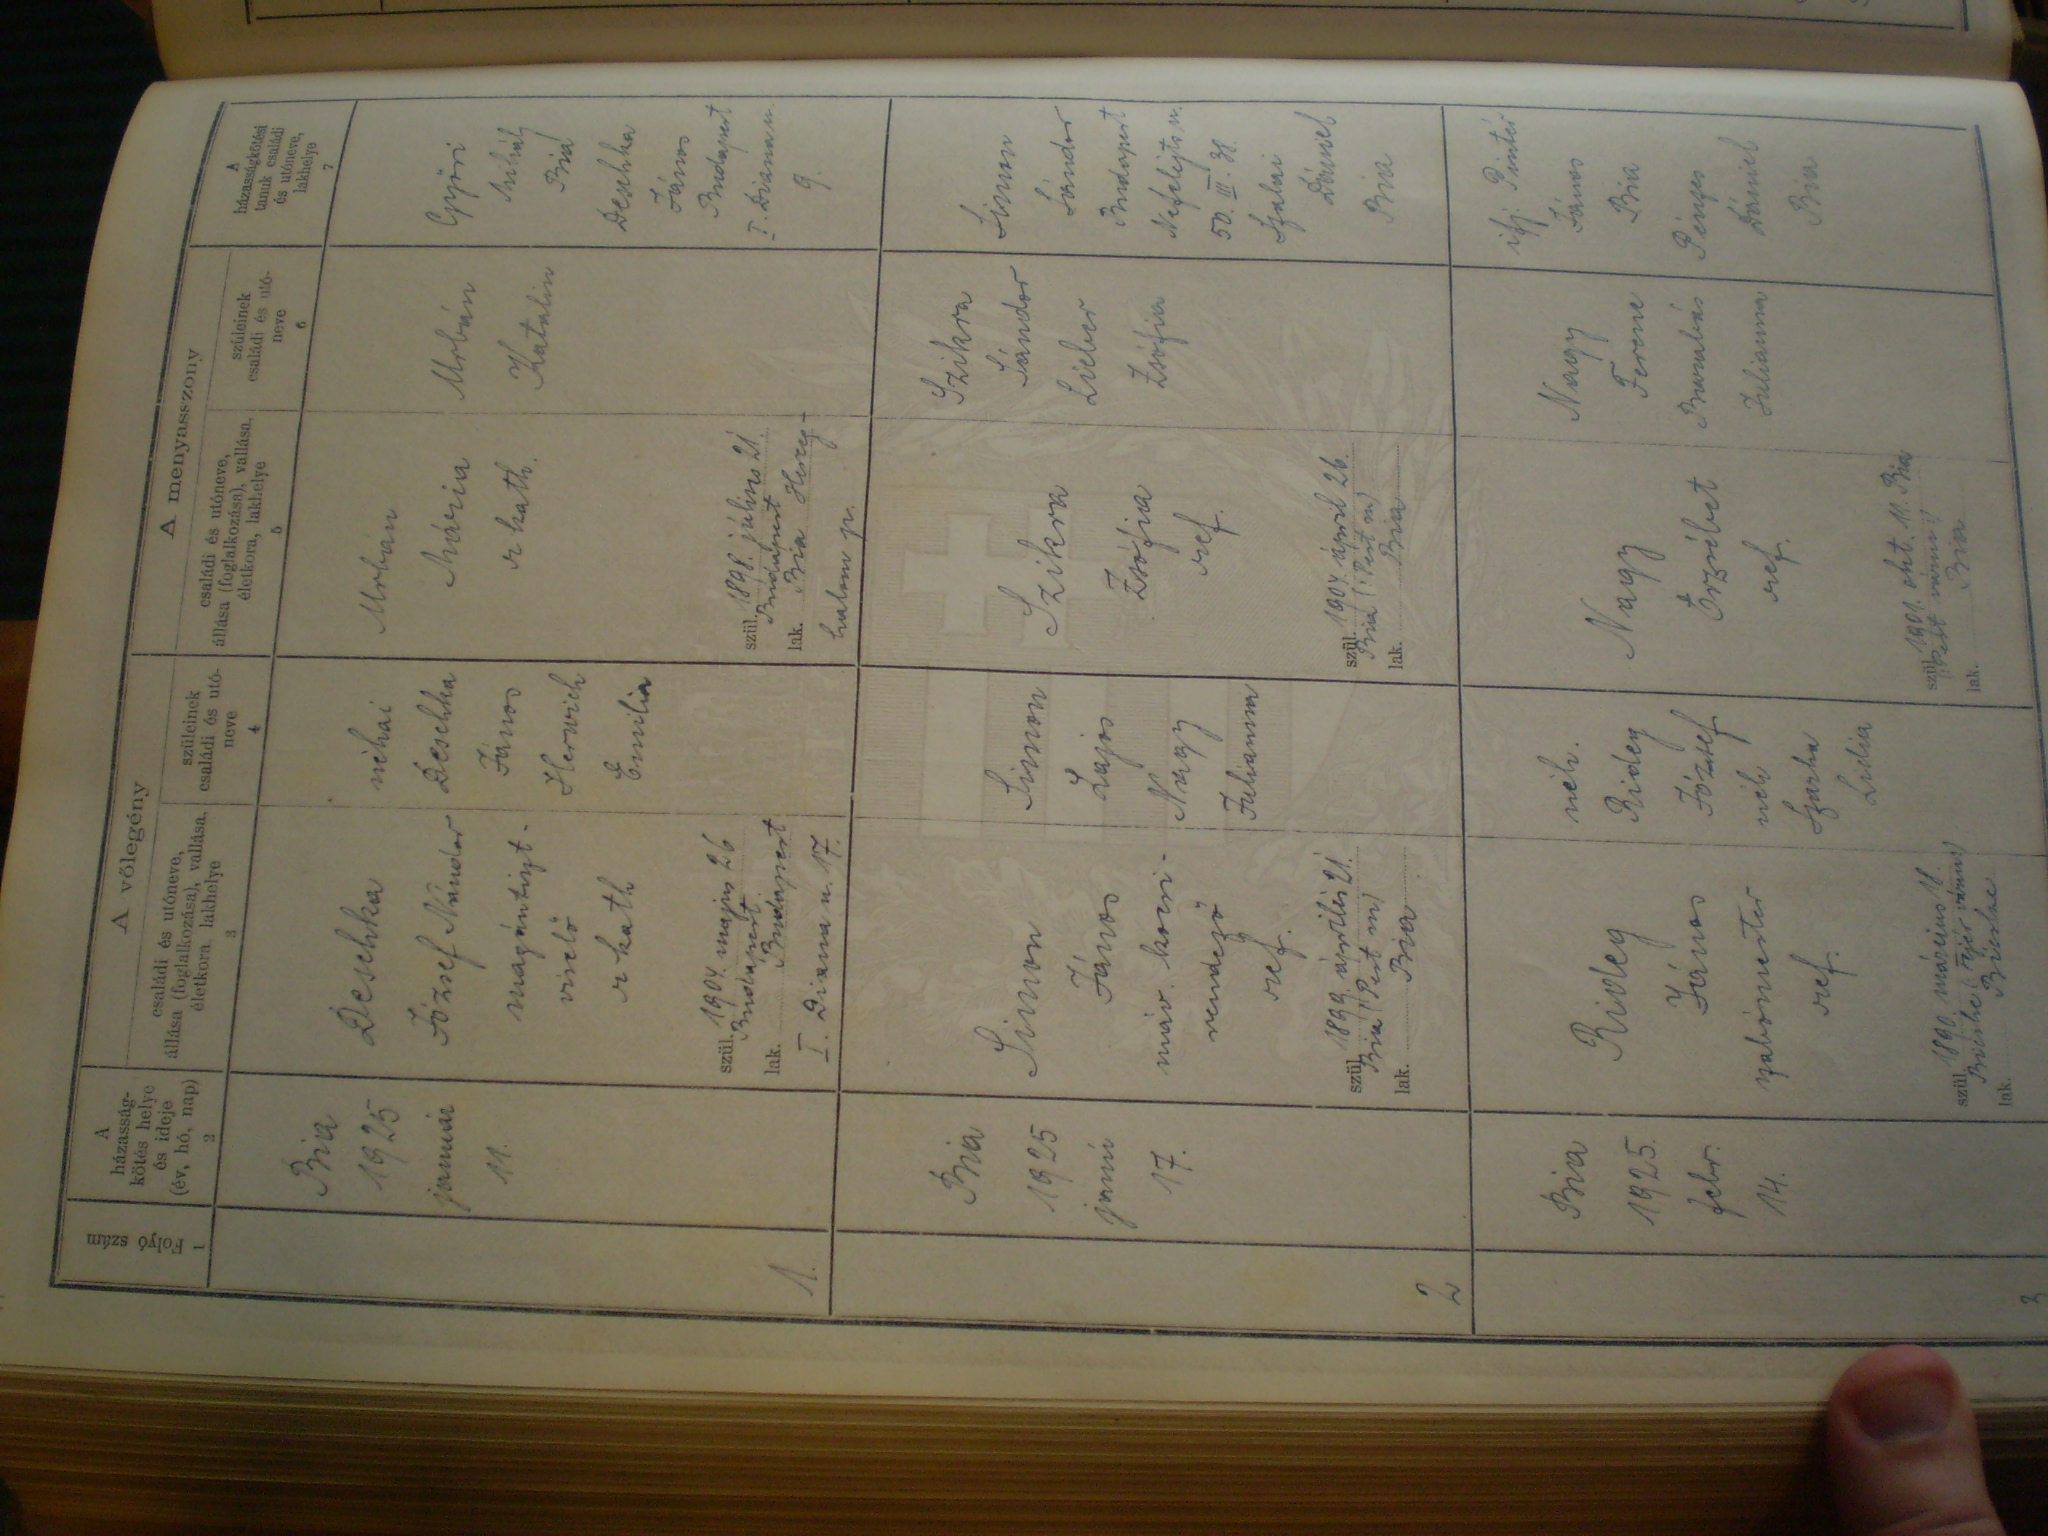 Folyó szám
1
A
házasság-
kötés helye
és ideje
(év, hó, nap)
2
A vőlegény
családi és utóneve,
állása (foglalkozása), vallása,
életkora, lakhelye
3
szüleinek
családi és utó-
neve
4
A menyasszony
családi és utóneve,
állása (foglalkozása), vallása,
életkora, lakhelye
5
szüleinek
családi és utó-
neve
6
A
házasságkötési
tanuk családi
és utóneve,
lakhelye
7
1.
Bia
1925
január
11.
Deschka
József Nándor
magántiszt-
viselő
r kath
szül. 1904. május 26
Budapest
lak. Budapest
I. Diana u. 17.
néhai
Deschka
János
Herwich
Emilia
Urbán
Mária
r kath.
szül. 1898. július 21
Budapest
lak. Bia Herceg-
halom p.
Urbán
Katalin
Győri
Mihály
Bia
Deschka
János
Budapest
I. Diana u.
9.
2
Bia
1925
január
17.
Simon
János
máv. kocsi-
rendező
ref.
szül. 1899. április 21.
Bia (Pest m)
lak. Bia
Simon
Lajos
Nagy
Julianna
Szikra
Zsófia
ref.
szül. 1904. április 26.
Bia (Pest m)
lak. Bia
Szikra
Sándor
Lieber
Zsófia
Simon
Sándor
Budapest
Nefelejts u.
50. III. 31.
Szalai
Dániel
Bia
3
Bia
1925.
febr.
14.
Rideg
János
ref.
szül. 1890. március 18.
Bicske (Fejér vármn)
lak. Bicske
néh.
Rideg
József
néh
Szarka
Lidia
Nagy
Erzsébet
ref.
szül. 1901. okt. 11. Bia
(Pest vármn)
lak. Bia
Nagy
Ferenc
Julianna
ifj. Pintér
János
Bia
Pénzes
Dániel
Bia